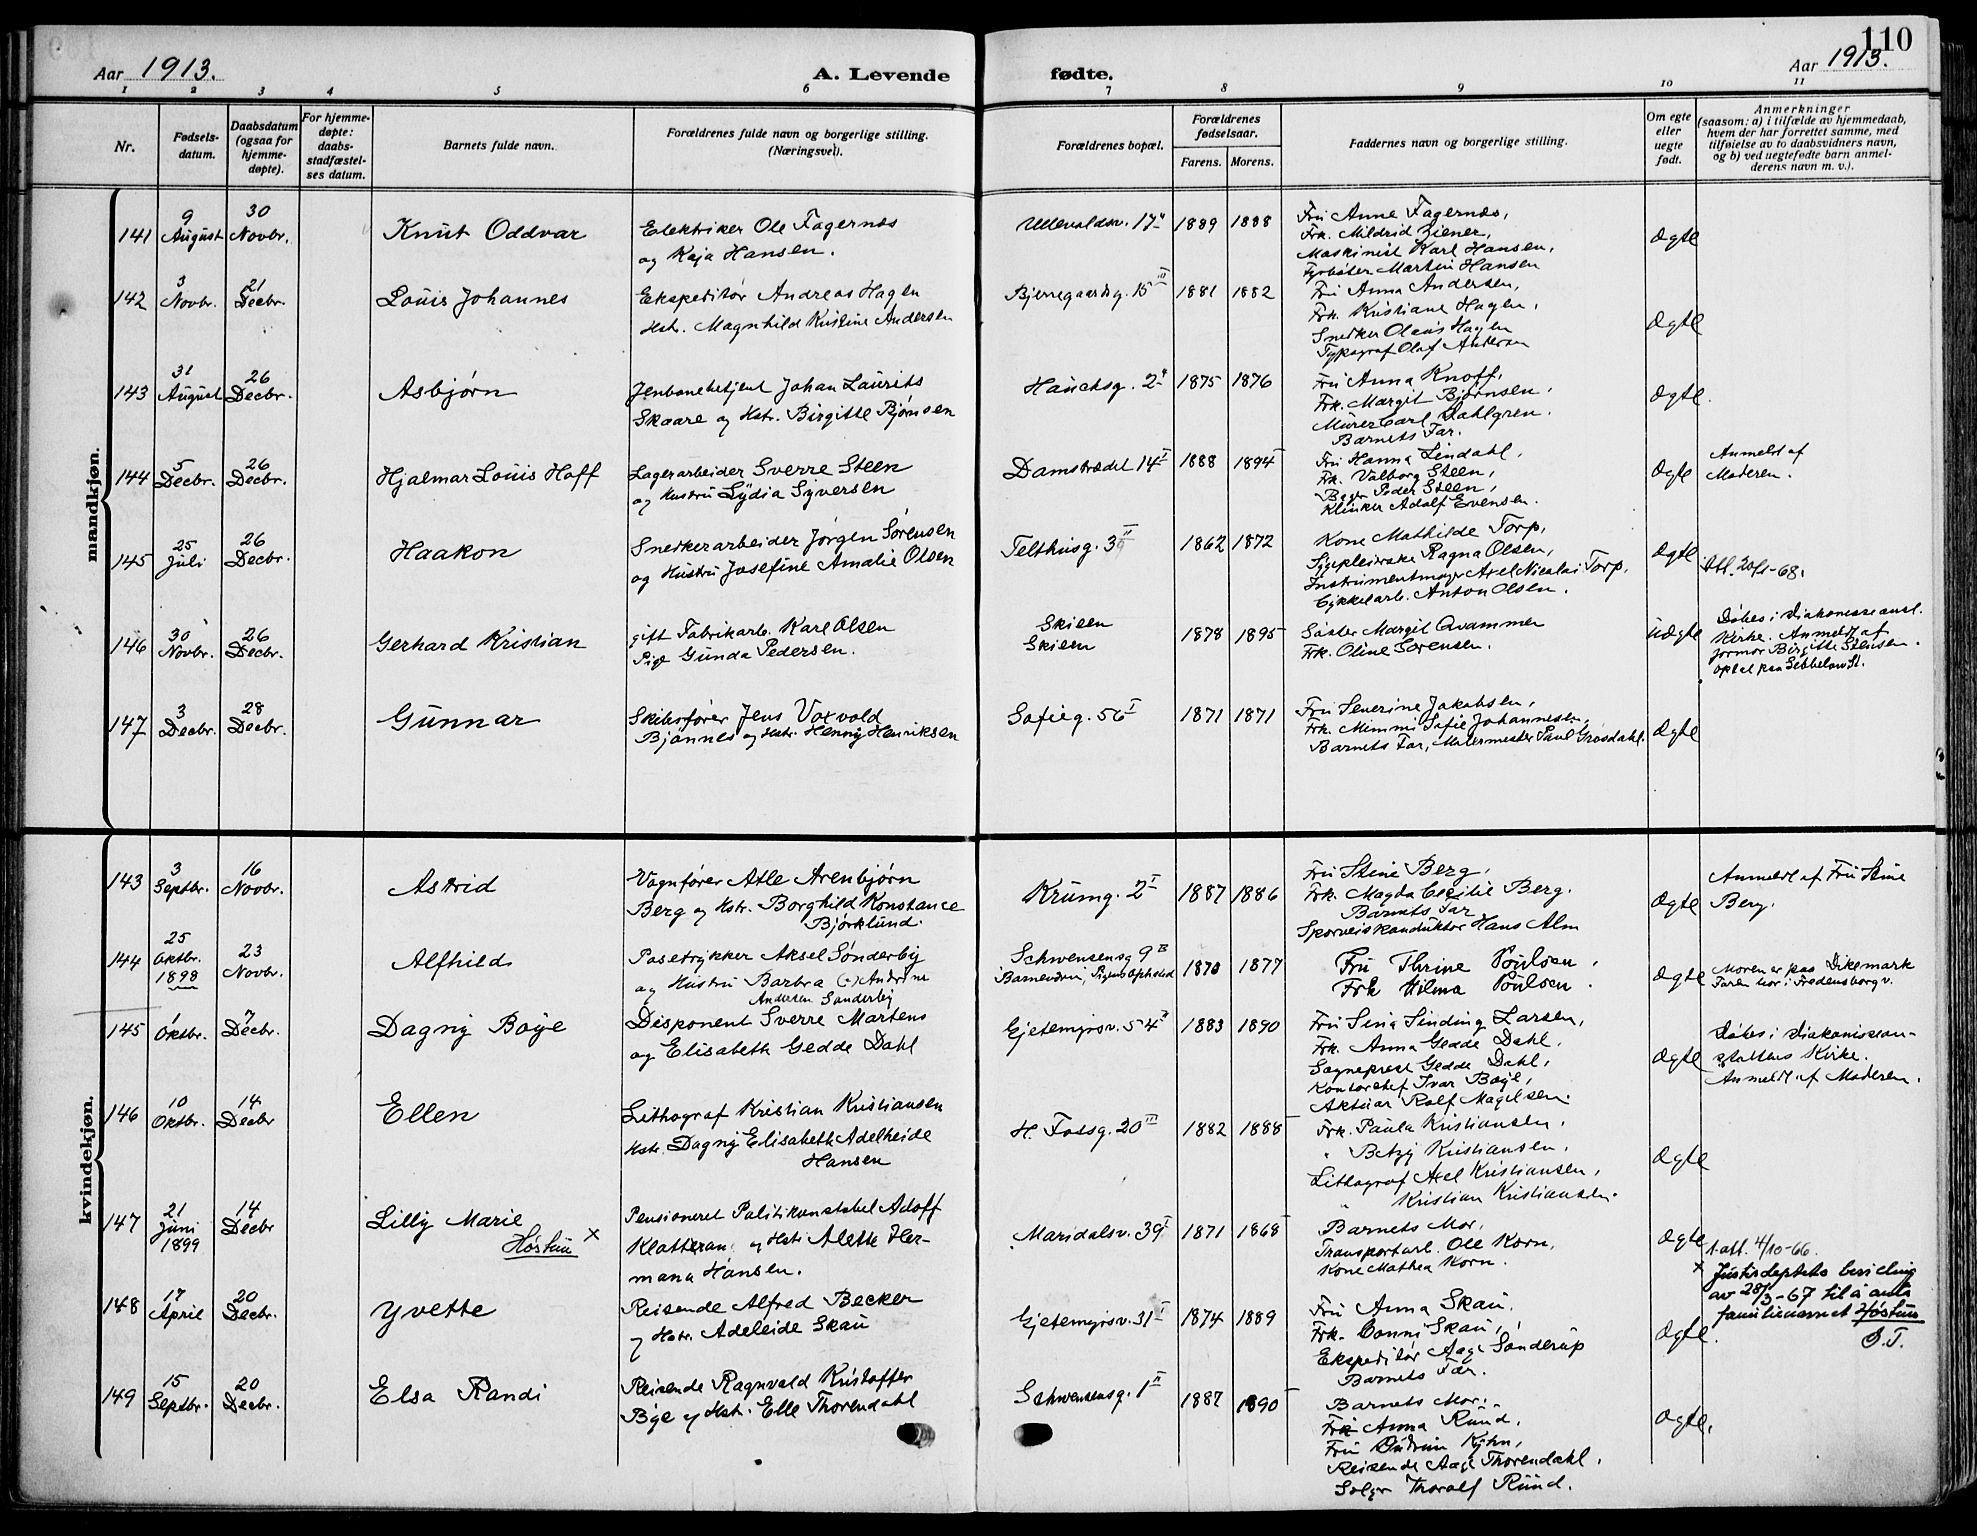 110
Aar 1913. A. Levende fødte. Aar 1913.
1 2 3 4 5 6 7 8 9 10 11
Nr.
Fødsels-
datum.
Daabsdatum
(ogsaa for
hjemme-
døpte).
For hjemme-
døpte:
daabs-
stadfæstel-
ses datum.
Barnets fulde navn.
Forældrenes fulde navn og borgerlige stilling.
(Næringsvei).
Forældrenes bopæl.
Forældrenes
fødselsaar.
Farens. Morens.
Faddernes navn og borgerlige stilling.
Om egte
eller
uegte
født.
Anmerkninger
(saasom: a) i tilfælde av hjemmedaab,
hvem der har forrettet samme, med
tilføielse av to daabsvidners navn,
og b) ved uegtefødte barn anmel-
derens navn m. v.).
mandkjøn.
141
9
August
30
Novbr.
Knut Oddvar
Elektriker Ole Fagernæs
og Kaja Hansen.
Ullevaldsv. 17
1889 1888
Fru Anne Fagernæs,
Frk. Mildrid Ziener,
Maskinist Karl Hansen,
Fyrbøter Martin Hansen
Ægte
142
3
Novbr.
21
Decbr.
Louis Johannes
Ekspeditør Andreas Hagen
Hstr. Magnhild Kristine Andersen
Bjerregaardsg. 15 II
1881 1882
Fru Anna Andersen,
Frk. Kristiane Hagen,
Snedker Olaus Hagen
Typograf Olaf Andersen
Ægte
143
31
August
26
Decbr.
Asbjørn
Jenbanebetjent Johan Laurits
Skaare og Hstr. Birgitte Bjønsen
Hauchsg. 2
1875 1876
Fru Anna Knoff,
Frk. Margit Bjørnsen,
Murer Carl Dahlgren.
Barnets Far.
Ægte.
144
5
Decbr.
26
Decbr.
Hjalmar Louis Hoff
Lagerarbeider Sverre Steen
og Hustru Lydia Syversen
Damstrædet 14 I
1888 1894
Fru Hanna Lindahl,
Frk. Valborg Steen,
Bager Peder Steen,
Klinker Adolf Evensen.
Ægte
Anmeldt af
Moderen.
145
25
Juli
26
Decbr.
Haakon
Snedkerarbeider Jørgen Sørensen
og Hustru Josefine Amalie Olsen
Telthusg. 3 II
1862 1872
Kone Mathilde Torp,
Sypleierske Ragna Olsen,
Instrumentmager Axel Nicolai Torp.
Cykkelarb. Anton Olsen.
Ægte
Att. 20/1-68.
146
30
Novbr.
26
Decbr.
Gerhard Kristian
gift Fabrikarb. Karl Olsen
Pige Gunda Pedersen.
Skien
Skien
1878 1895
Søster Margit Qvammen
Frk. Oline Sørensen.
Uægte
Døbes i Diakonisseanst.
Kirke. Anmeldt af
formor Birgitte Stensen.
optat paa Sebbelows St.
147
3
Decbr.
28
Decbr.
Gunnar
Skibsfører Jens Voxvold
Bjønnes og Hstr. Henny Henriksen
Sofieg. 56 I
1871 1871
Fru Severine Jakobsen,
Frk. Mimmi Sofie Johannesen,
Barnets Far, Malermester Paul Grøsdahl.
Ægte
kvindekjøn.
143
3
Septbr.
16
Novbr.
Astrid
Vognfører Atle Arenbjørn
Berg og Hstr. Borghild Konstance
Bjørklund.
Krumg. 2 I
1887 1886
Fru Stine Berg,
Frk. Magda Cecilie Berg.
Barnets Far
Sporveiskonduktør Hans Alm
Ægte
Anmeldt af Fru Stine
Berg.
144
25
Oktbr.
1898
23
Novbr.
Alfhild
Posetrykker Aksel Sønderby
og Hustru Barbra Andrine
Andersen Sønderby
Schwensensg 9
1870 1877
Fru Thrine Poulsen,
Frk Wilma Poulsen.
Ægte
Moren er paa Dikemark
Faren bor i Fredensborgv.
145
1
Oktbr.
7
Decbr.
Dagny Boye
Disponent Sverre Martens
og Elisabeth Gedde Dahl
Gjetemyrsv. 54
1883 1890
Fru Sina Sinding Larsen,
Frk. Anna Gedde Dahl.
Sogneprest Gedde Dahl,
Kontorchef Ivar Boye,
Aktuar Rolf Magelsen.
Ægte
Døbes i Diakonissean-
staltens Kirke.
Anmeldt af Moderen.
146
10
Oktbr.
14
Decbr
Ellen
Lithograf Kristian Kristiansen
Hstr. Dagny Elisabeth Adelheide
Hansen
H. Fossg. 20 III
1882 1888
Frk. Paula Kristiansen.
" Betzy Kristiansen,
Lithograf Axel Kristiansen,
" Kristian Kristiansen.
Ægte
147
21
Juni
1899
14
Decbr
Lilly Marie
Høstun x
Pensioneret Politikonstabel Adolf
Klatteran og Hstr Alette Her-
mana Hansen.
Maridalsv. 39 I
1871 1868
Barnets Mor,
Transportarb. Ole Korn,
Kone Mathea Korn.
Ægte
1.att. 4/10-66.
x Justisdeptets beviling
av 28/3-67 til å anta
familienavnet Høstun
S.T.
148
17
April
20
Decbr.
Yvette
Reisende Alfred Becker
og Hstr. Adeleide Skau
Gjetemyrsv. 31 I
1874 1889
Fru Anna Skau.
Frk. Conni Skau,
Ekspeditør Aage Sønderup
Barnets Far.
Ægte.
149
15
Septbr.
20
Decbr.
Elsa Randi
Reisende Ragnvald Kristoffer
Bye og Hstr. Elle Thorendahl
Schwensensg. 1 II
1887 1890
Barnets Mor,
Frk Anna Rund,
Fru Gudrun Kyhn,
Reisende Aage Thorendahl.
Selger Thoralf Rund.
Ægte.